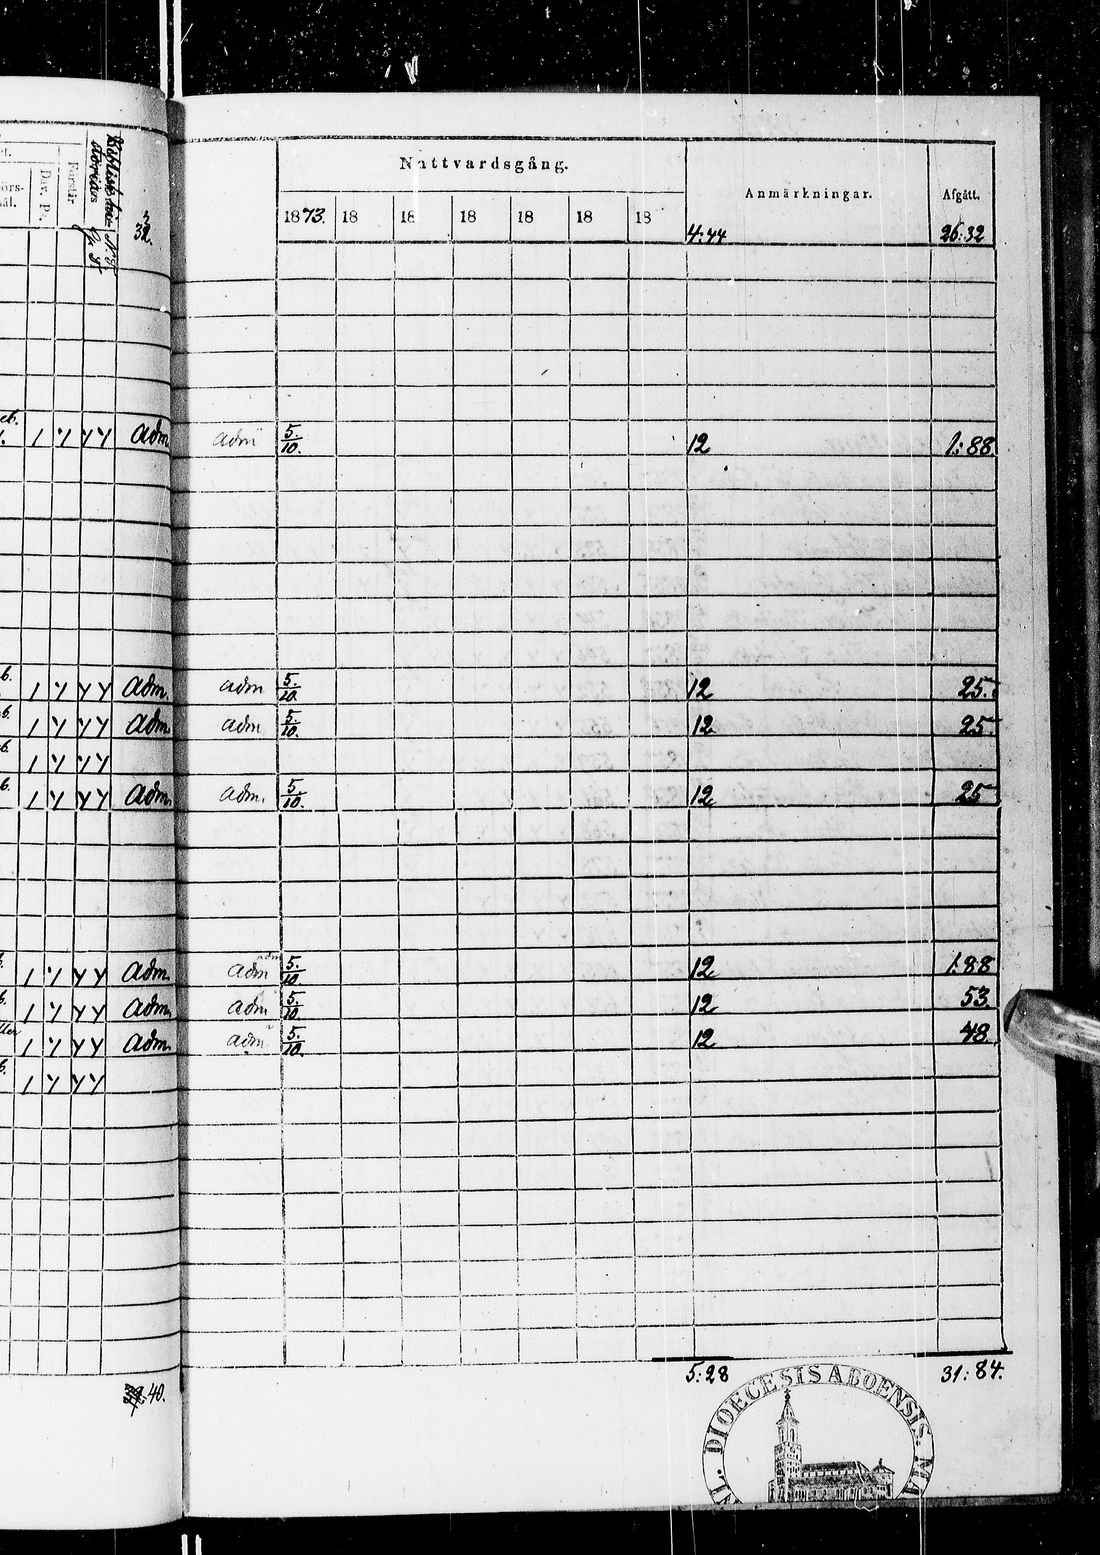 Nattvardsgång.
Anmärkningar.
Afgått.
Förstår
Dav. Ps.
1873. 18 18 18 18 18 18
4:44
26:32
1 Y Y Y adm.
adm 5/10. 12 1:88
1 Y Y Y adm.
adm 5/10. 12 25.
1 Y Y Y adm.
adm 5/10. 12 25.
1 Y Y Y
1 Y Y Y adm.
adm. 5/10. 12 25
1 Y Y Y adm.
adm 5/10. 12 1:88
1 Y Y Y adm.
adm 5/10. 12 53
1 Y Y Y adm.
adm 5/10. 12 48.
1 Y Y Y
40.
5:28
31:84.
DIOECESIS ABOENSIS. MA